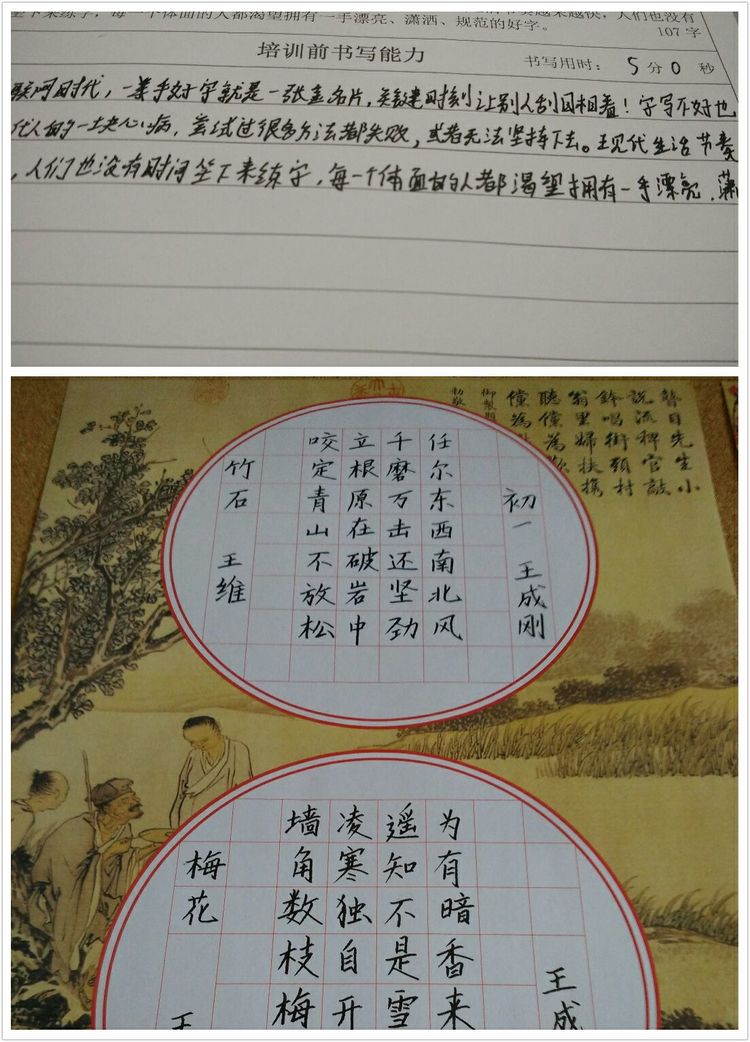 越来越快，人们也没有
坐下来练字，每一个体面的人都渴望拥有一手漂亮、潇洒、规范的好字。
107字
培训前书写能力 书写用时： 5 分 0 秒
联网时代，一笔手好字就是一张金名片，关键时刻让别人刮目相看！字写不好也
代人的一块心病，尝试过很多方法都失败，或者无法坚持下去。现代生活节奏
，人们也没有时间坐下来练字，每一个体面的人都渴望拥有一手漂亮、潇
瞽目先生小
説流稗官敲
唱街頭村
翁里婦扶携
竹石 王维
咬定青山不放松
立根原在破岩中
千磨万击还坚劲
任尔东西南北风
初一 王成刚
梅花 王
墙角数枝梅
凌寒独自开
遥知不是雪
为有暗香来
王成